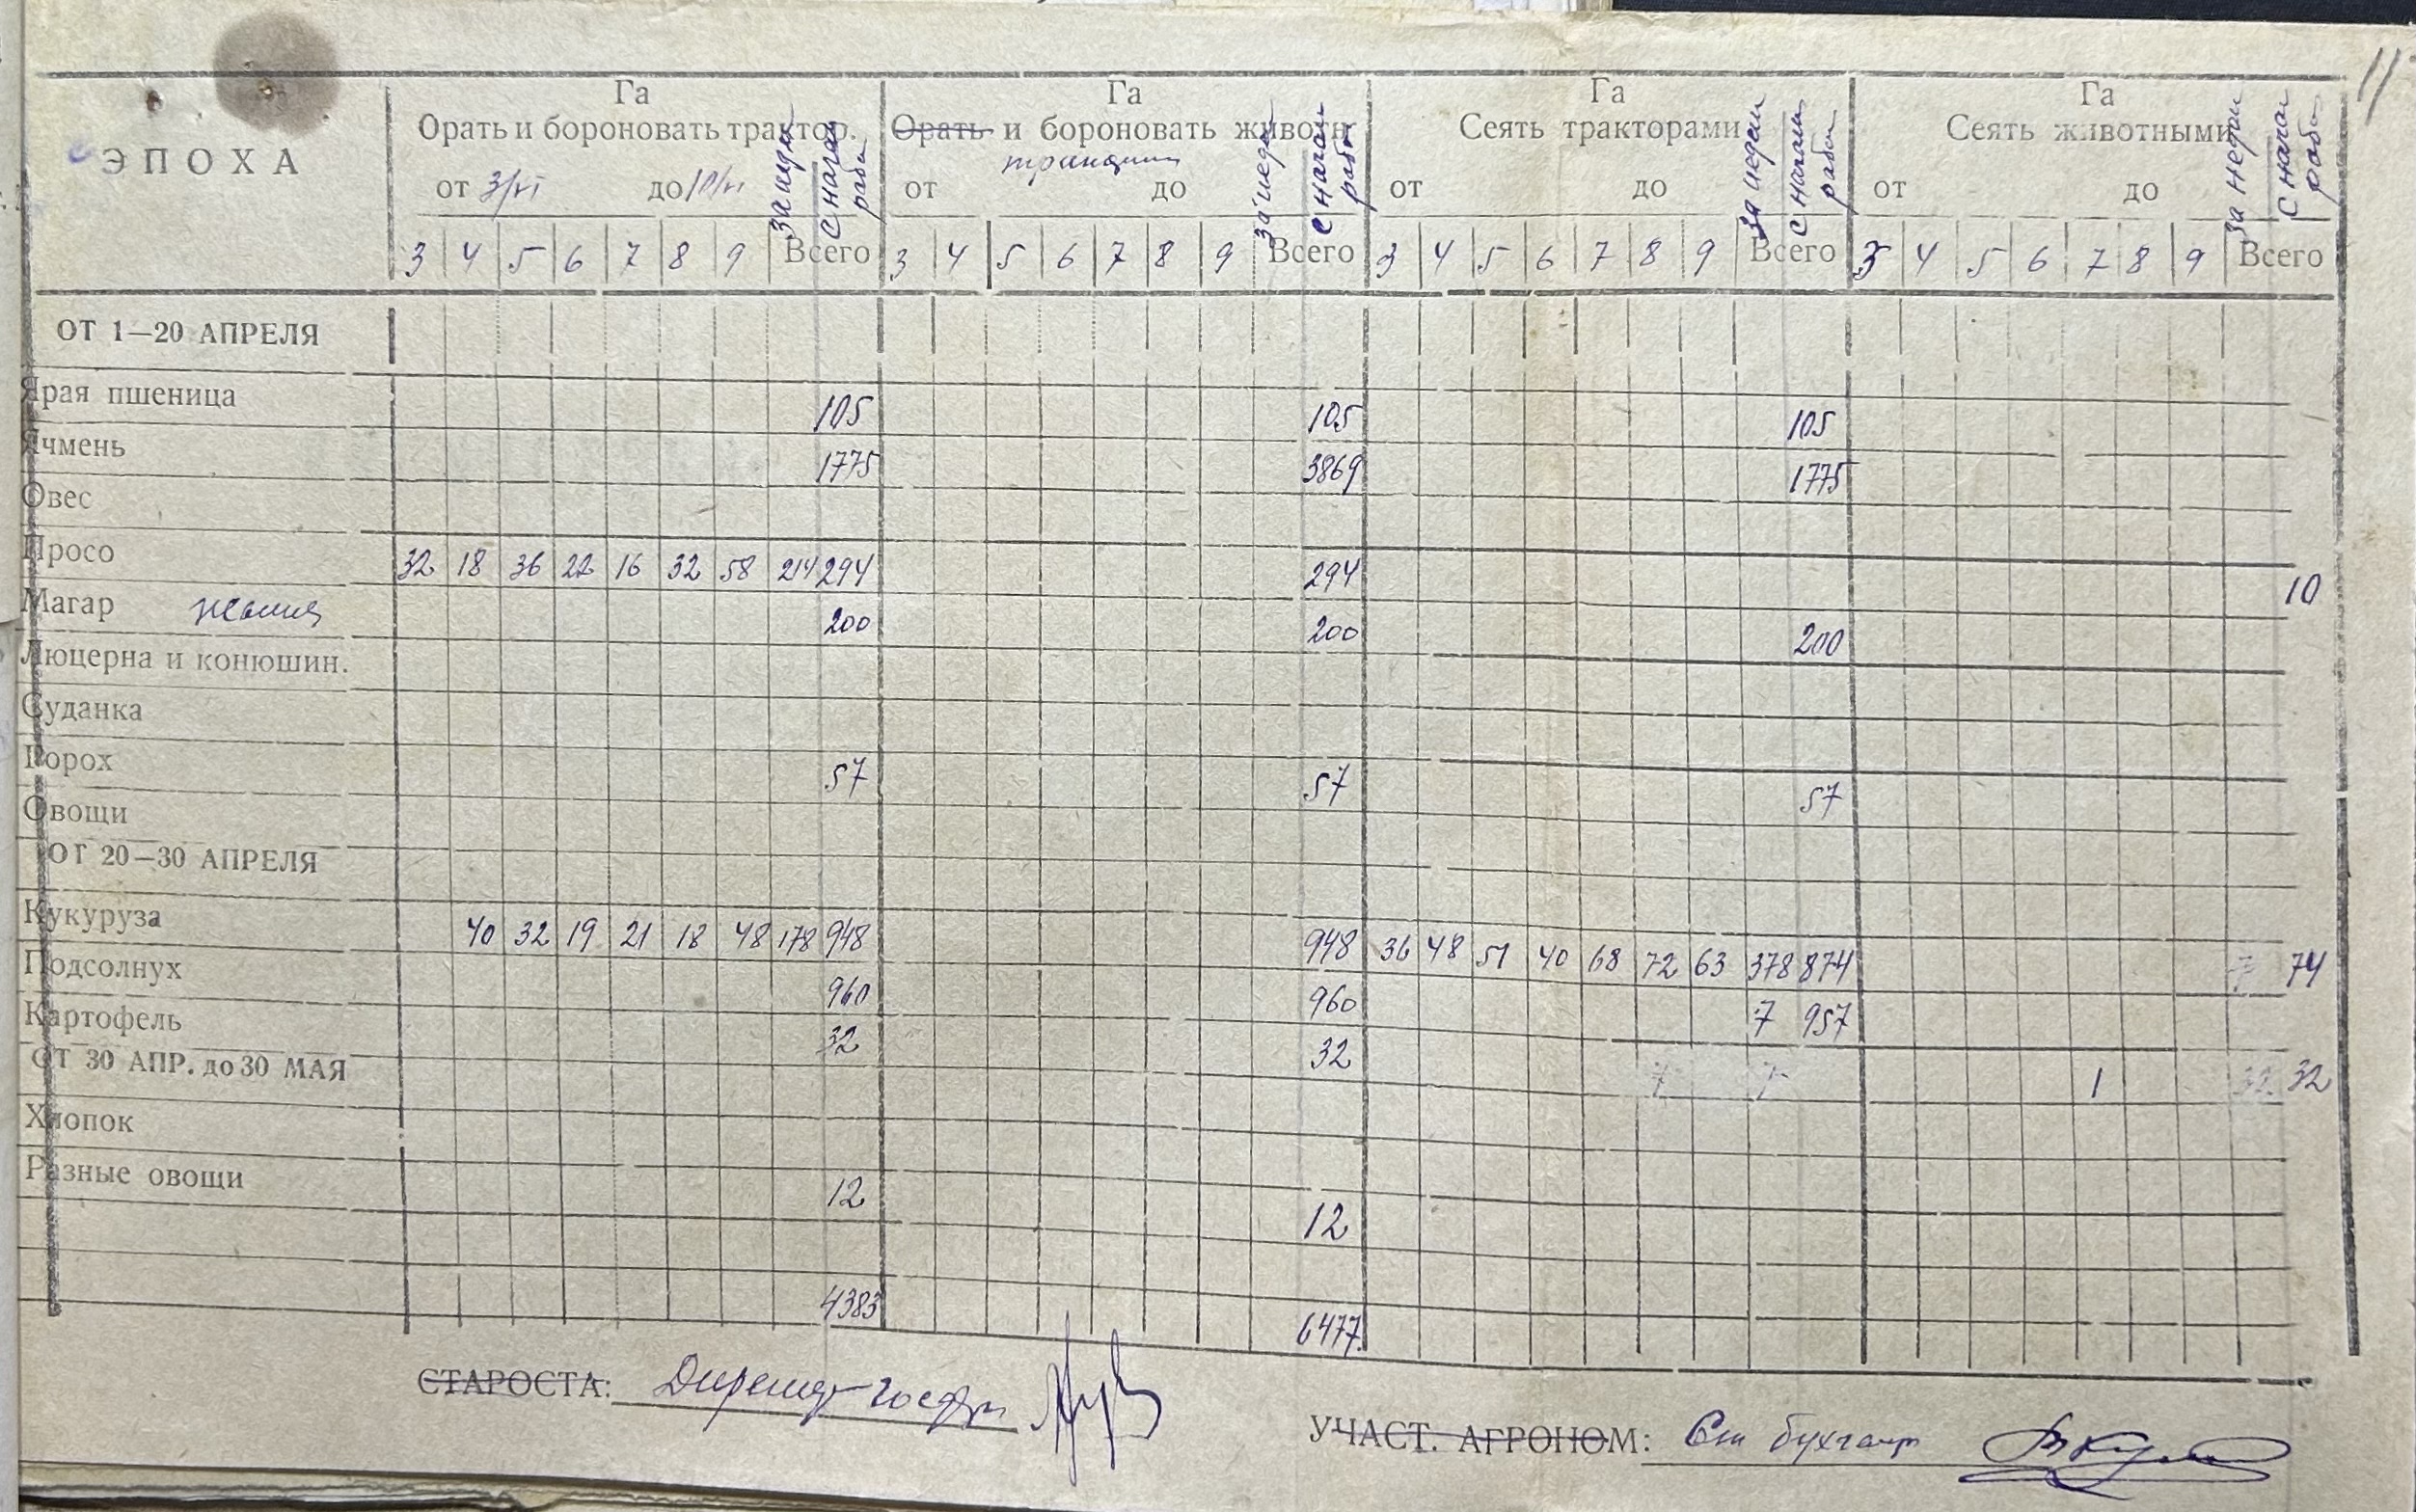 11
Га Га Га Га
Орать и бороновать трактор. Орать и бороновать животн. Сеять тракторами Сеять животными
за недел с начал работ за недел с начал работ за недел с начала работ за недел с начал работ
ЭПОХА
от 3/VI до 10/VI от до от до от до
3 4 5 6 7 8 9 Всего 3 4 5 6 7 8 9 Всего 3 4 5 6 7 8 9 Всего 3 4 5 6 7 8 9 Всего
ОТ 1—20 АПРЕЛЯ
Ярая пшеница 105 105 105
Ячмень 1775 3869 1775
Овес
Просо 32 18 36 22 16 32 58 214 294 294 10
Магар 200 200 200
Люцерна и конюшин.
Суданка
Горох 57 57 57
Овощи
ОТ 20—30 АПРЕЛЯ
Кукуруза 40 32 19 21 18 48 178 948 948 36 48 51 40 68 72 63 378 874 74
Подсолнух 960 960 7 957
Картофель 32 32 1 32 32
ОТ 30 АПР. до 30 МАЯ
Хлопок
Разные овощи 12 12
4383 6477
СТАРОСТА: Директор госхоз
УЧАСТ. АГРОНОМ: Ст бухгалт